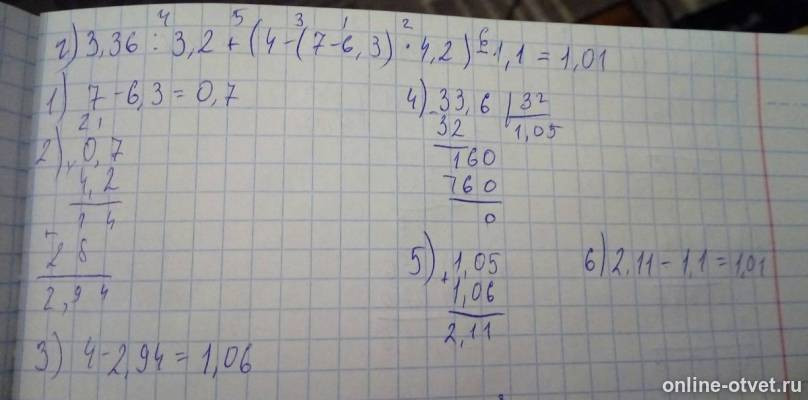 4 5 3 1 2 6
г) 3,36 : 3,2 + (4 - (7 - 6,3) · 4,2) - 1,1 = 1,01
1) 7 - 6,3 = 0,7
2 1
2) × 0,7
4,2
1 4
+ 2 8
2,9 4
3) 4 - 2,94 = 1,06
4) - 33,6 | 32
32 1,05
160
160
0
5) + 1,05
1,06
2,11
6) 2,11 - 1,1 = 1,01
online-otvet.ru